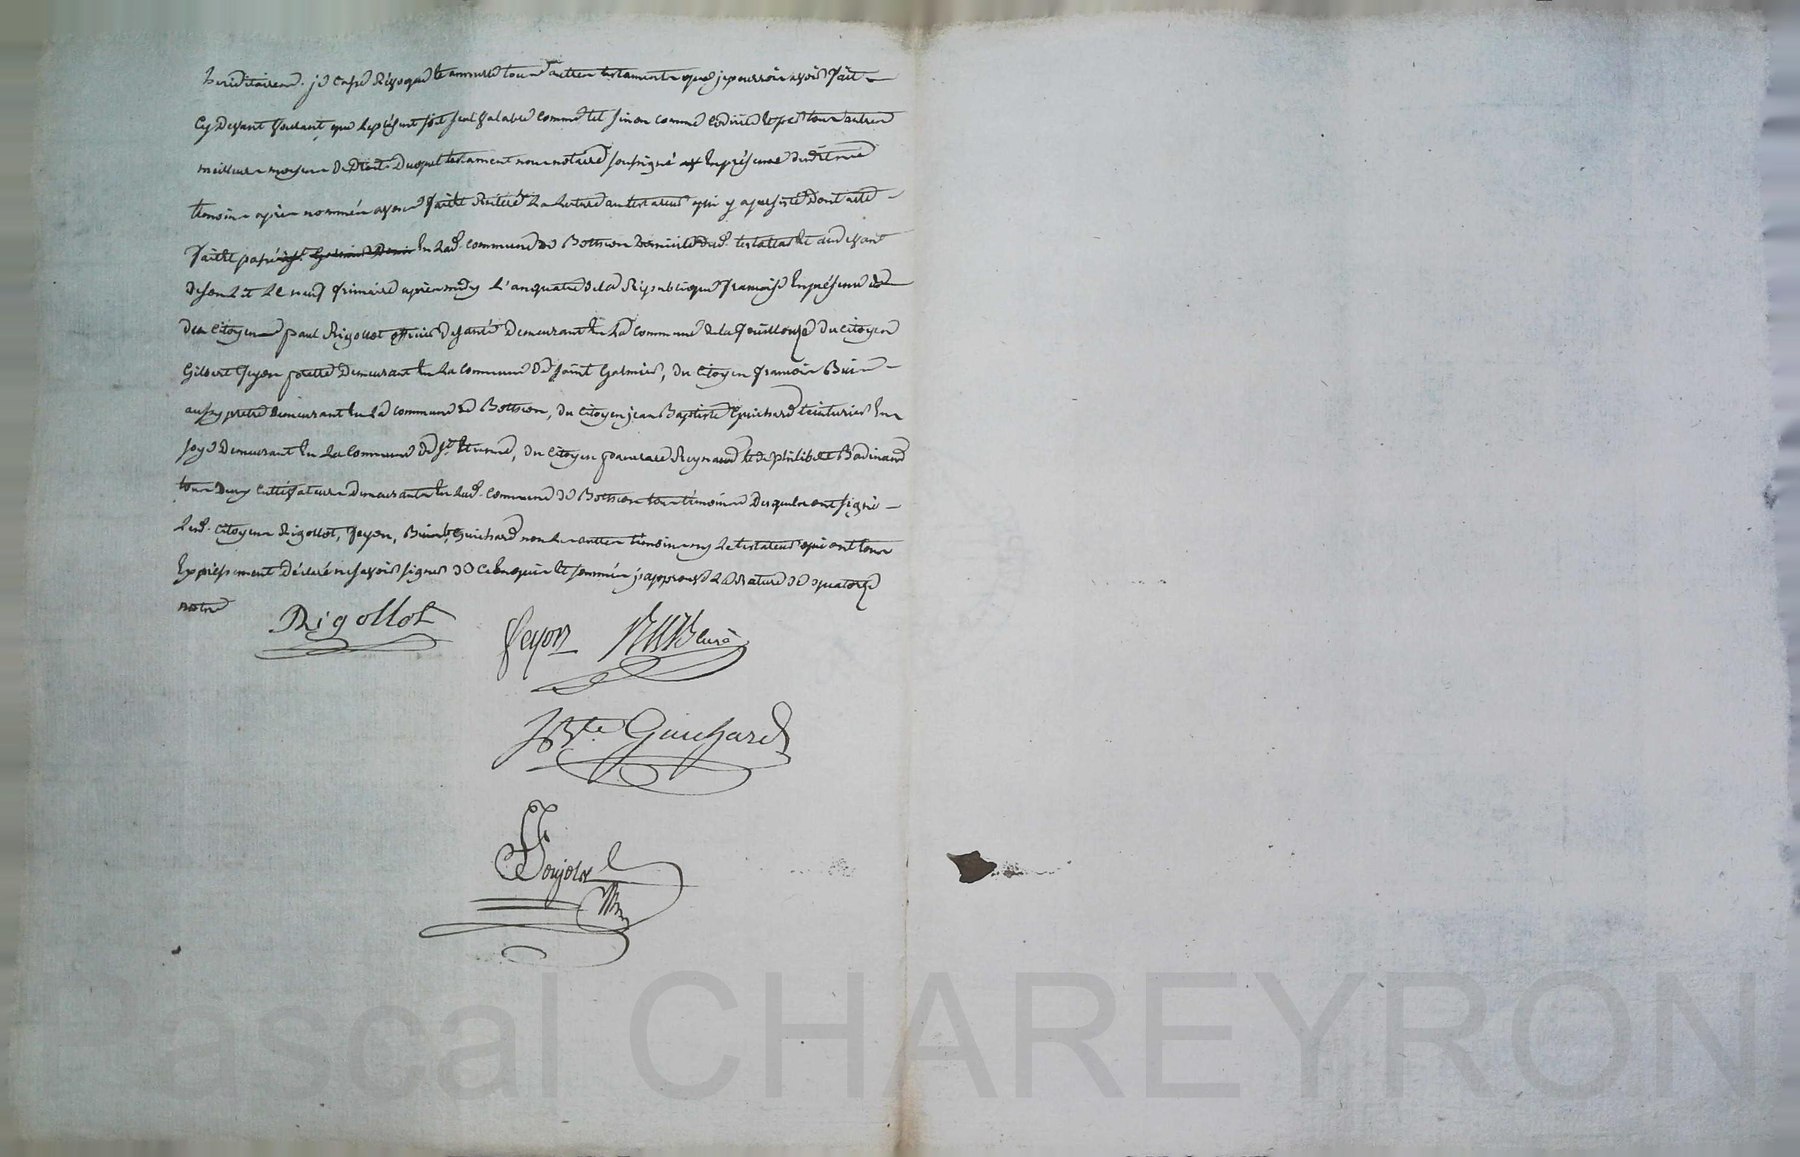 héréditaires. je casse révoque et annulle tous autres testaments que je pourrois avoir fait
cy devant voulant que le présent soit seul valable comme tel sinon comme codicile et par tous autres
meilleurs moyens de droit. Duquel testament nous notaire soussigné en présence desdits
témoins après nommés avons faite lecture au testateur qui y a persisté dont acte
fait et passé en lad. commune de Botheon domicile dud. testateur et au devant
de son lit le neuf frimaire après midy l'an quatre de la République françoise en présence
des citoyens paul Rigollot officier de santé demeurant en la commune de la fouillouze du citoyen
Gilbert feyon prettre demeurant en la commune de saint Galmier, du citoyen françois Buis
aussy pretre demeurant en la commune de Botheon, du citoyen jean Baptiste Guichard teinturier en
soye demeurant en la commune de St. etienne, du citoyen Reynaud et de philibert Badinand
tous deux cultivateurs demeurants en lad. commune de Botheon tous témoins desquels ont signé
lesd. citoyens Rigollot, feyon, Buis, Guichard non les autres témoins ny le testateur qui ont tous
expressement déclaré ne savoir signer de ce enquis et sommés j'approuve la rature de quatorze
Rigollot
feyon curé
JBte Guichard
Pascal CHAREYRON